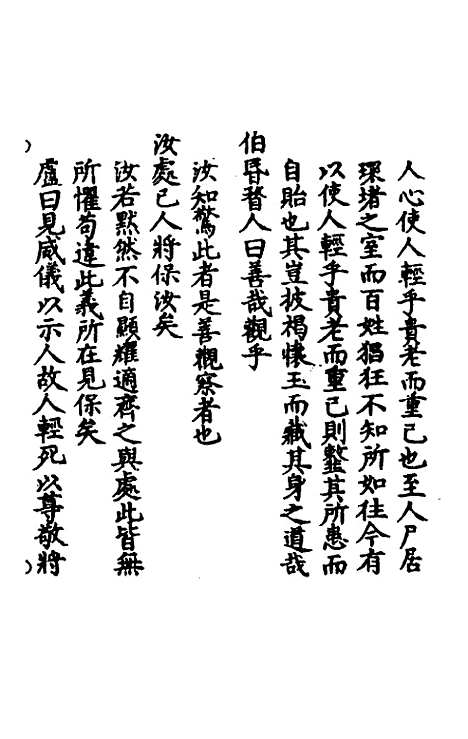 人心使人輕乎貴老而重己也至人尸居
環堵之室而百姓猖狂不知所如往今有
以使人輕乎貴老而重己則整其所患而
自貽也其豈披褐懷玉而藏其身之道哉
伯昬瞀人曰善哉觀乎
汝知驚此者是善觀察者也
汝處已人將保汝矣
汝若黙然不自顯耀適齊之與處此皆無
所懼苟違此義所在見保矣
盧曰見威儀以示人故人輕死以尊敬將